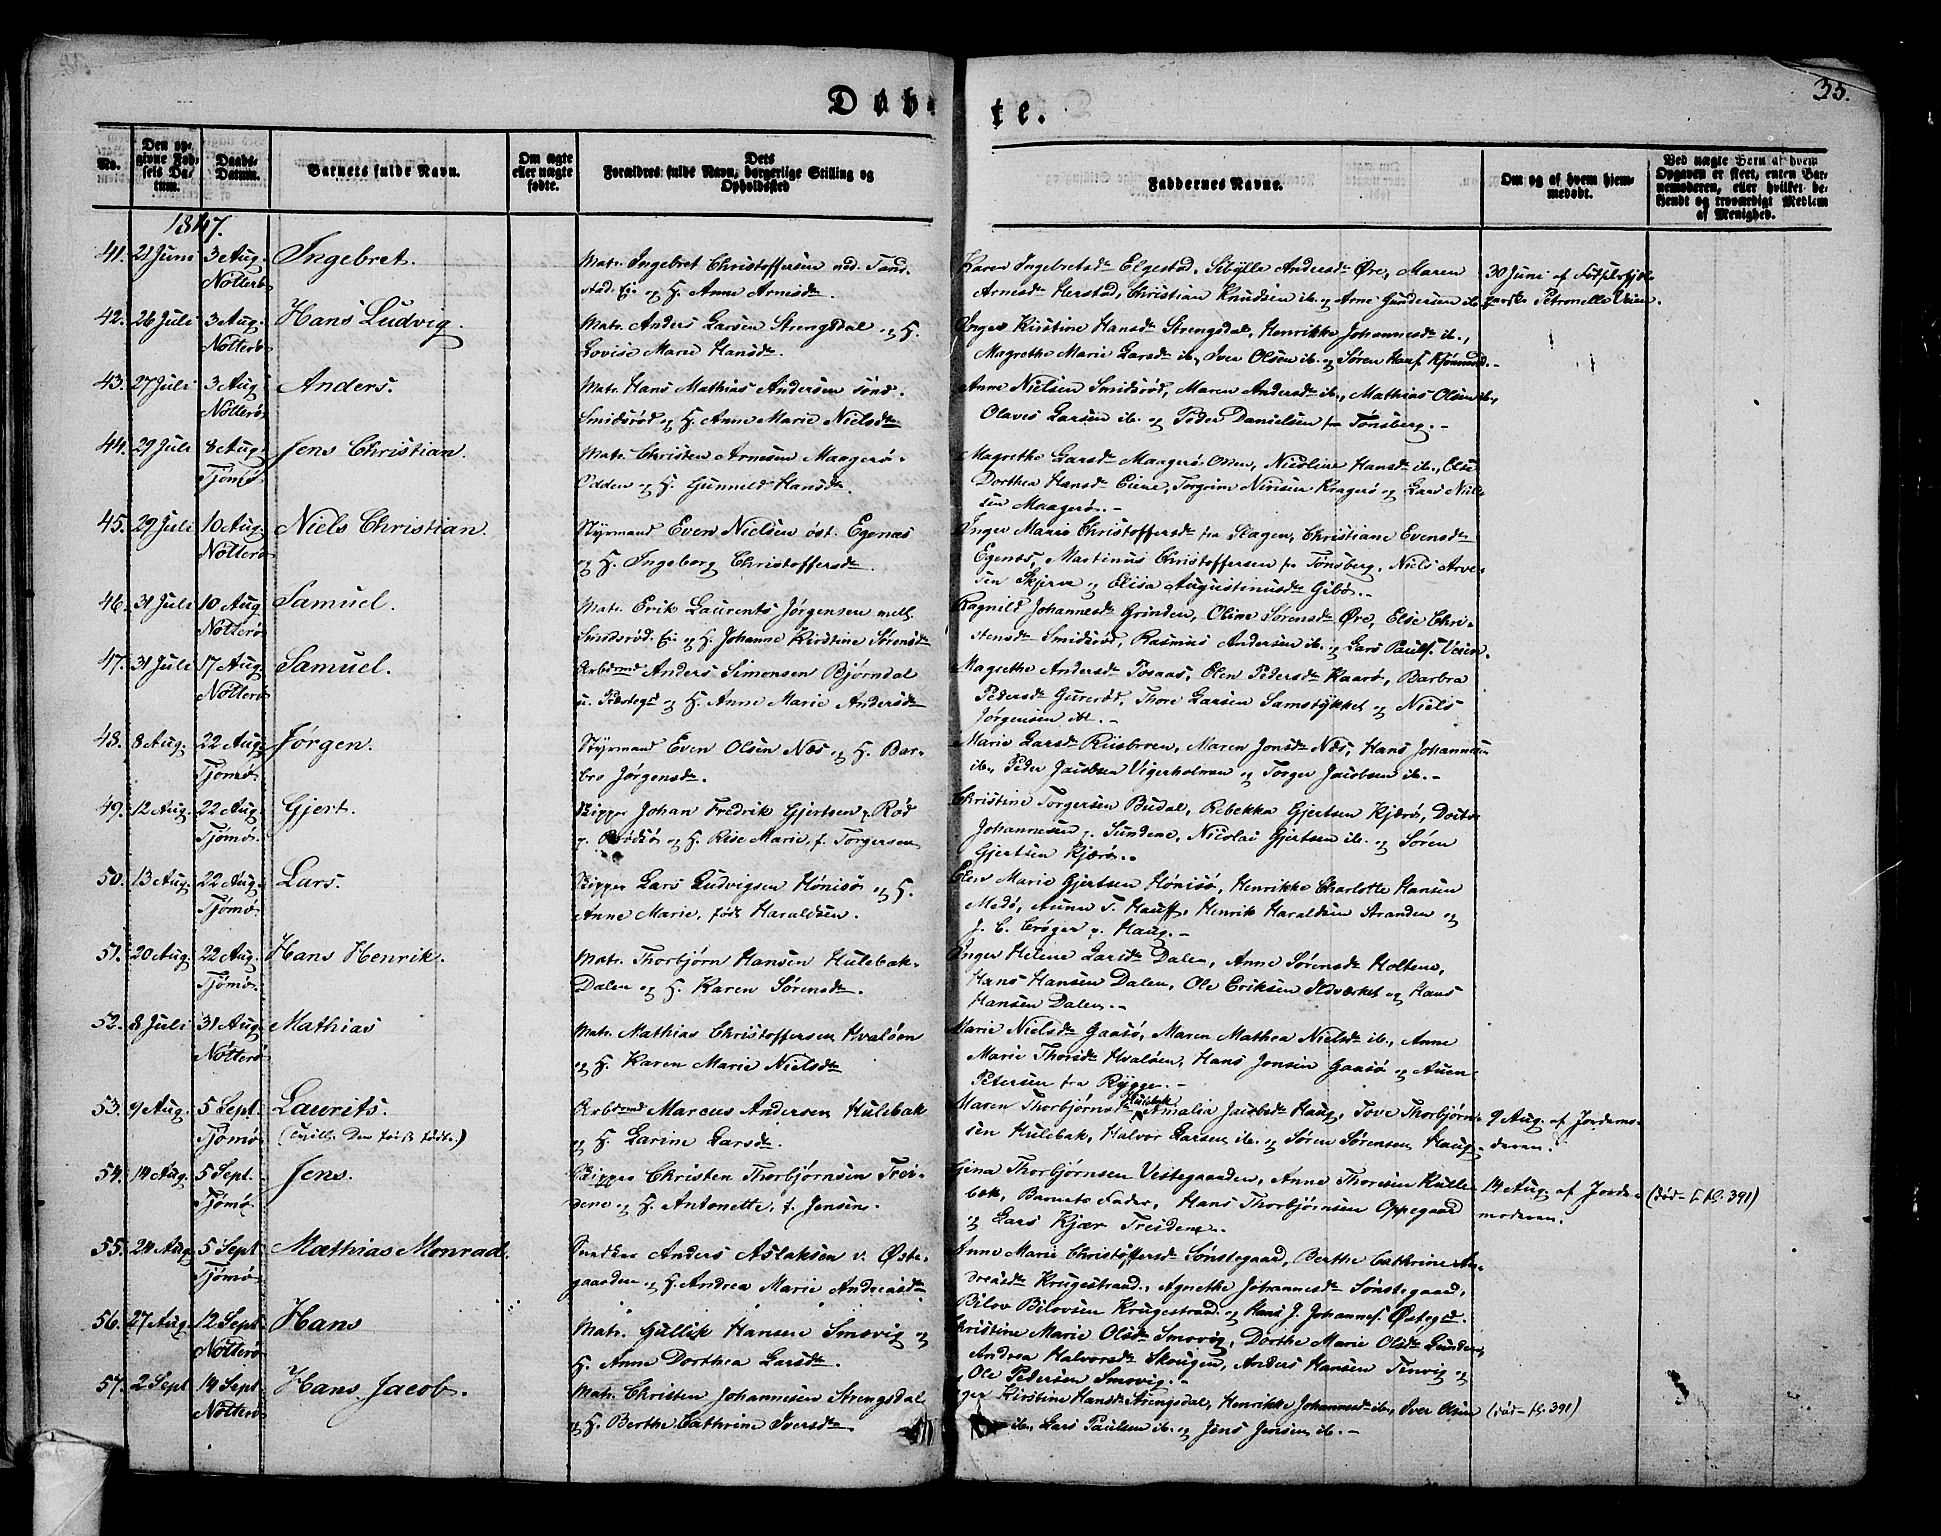 Døbte.
35.
No.
Den opgivne Fødsels Datum.
Daabs-Datum.
Barnets fulde Navn.
Om ægte eller uægte fødte.
Dets Forældres fulde Navn, borgerlige Stilling og Opholdssted
Faddernes Navne.
Om og af hvem hjemmedøbt.
Ved uægte Børn af hvem Opgaven er skeet, enten Barnemoderen, eller hvilket bekjendt og troværdigt Medlem af Menighed.
1847.
41. 21 Juni 3 Aug. Nøtterø Ingebret.
Matr. Ingebret Christoffersen ned. Tand-
stad. Eie og H. Anne Arnesdr.
Karen Ingebretsdr Elgestad, Sibylle Andersdr Øre, Maren
Arnesdr Herstad, Christian Knudsen ib. og Arne Gundersen ib.
30 Juni af Fødselshjelp
Petronelle Veien.
42. 26 Juli 3 Aug. Nøtterø Hans Ludvig.
Matr. Anders Larsen Strengsdal og H.
Lovise Marie Hansdr.
Inger Kirstine Hansdr Strengsdal, Henrikke Johannesdr ib.,
Magrethe Marie Larsdr ib., Iver Olsen ib. og Søren Hans.
43. 27 Juli 3 Aug. Nøtterø Anders.
Matr. Hans Mathias Andersen sönd.
Smidsrød og H. Anne Marie Nielsdr
Anne Nielsen Smidsrød, Maren Andersdr ib., Mathias Olsen ib.,
Olaves Larsen ib. og Peder Danielsen fra Tønsberg.
44. 29 Juli 8 Aug. Tjømø Jens Christian.
Matr. Christen Arnesen Maagerø-
Odden og H. Gunneld Hansdr.
Magrethe Larsdr Maagerø-Odden, Nicoline Hansdr ib., Else
Dorthea Hansdr Eiene, Torgrim Nilsen Kragerø og Lars Niel-
sen Maagerø.
45. 29 Juli 10 Aug. Nøtterø Niels Christian.
Styrmand Even Nielsen öst. Egenæs
og H. Ingeborg Christoffersdr.
Inger Marie Christoffersdr fra Slagen, Christiane Evensdr
Egenæs, Martinus Christoffersen fra Tønsberg, Niels Arve-
sen Skjerve og Elisa Augustinusdr Gibø.
46. 31 Juli 10 Aug. Nøtterø Samuel.
Matr. Erik Laurents Jørgensen mell.
Smidsrød. Eie og H. Johanne Kirstine Sørensdr
Ragnild Johannesdr Grinden, Oline Sørensdr Øre, Else Chri-
stensdr Smidsrød, Rasmus Andersen ib. og Lars Pauls. Veien.
47. 31 Juli 17 Aug. Nøtterø Samuel.
Arbdsmd Anders Simonsen Bjørndal
u. Præstegd og H. Anne Marie Andersdr
Magrethe Andersdr Tosaas, Olen Pedersdr Kaarø, Barbra
Pedersdr Gurerød, Thore Larsen Samstykket og Niels
Jørgensen ib.
48. 8 Aug. 22 Aug. Tjømø Jørgen.
Styrmand Even Olsen Næs og H. Bar-
bro Jørgensdr.
Marie Larsdr Riisbroen, Maren Jonsdr Næs, Hans Johannesen
ib., Peder Jacobsen Vigerholmen og Torger Jacobsen ib.
49. 12 Aug. 22 Aug. Tjømø Gjert.
Skipper Johan Fredrik Gjertsen p. Rød
p. Brødsø og H. Rise Marie, f. Torgersen
Christine Torgersen Budal, Rebekka Gjertsen Kjærø,
Johannesen p. Sundene, Nicolai Gjertsen ib. og Søren
Gjertsen Kjærø.
50. 13 Aug. 22 Aug. Tjømø Lars.
Skipper Lars Ludvigsen Hønisø og H.
Anne Marie, født Haraldsen.
Elen Marie Gjertsen Hønisø, Henrikke Charlotte Hansen
Medø, Aunon T. Hauff, Henrik Haraldsen Stranden og
J. C. Crøger p. Haug.
51. 20 Aug. 22 Aug. Tjømø Hans Henrik.
Matr. Thorbjørn Hansen Hulebak-
Dalen og H. Karen Sørensdr.
Inger Helene Larsdr Dalen, Anne Sørensdr Holtene,
Hans Hansen Dalen, Ole Eriksen Ildværket og Hans
Hansen Dalen.
52. 8 Juli 31 Aug. Nøtterø Mathias
Matr. Mathias Christoffersen Hvaløen
og H. Karen Marie Nielsdr
Marie Nielsdr Gaasø, Maren Mathea Nielsdr ib., Anne
Marie Thorsdr Hvaløen, Hans Jonsen Gaasø og Auen
Petersen fra Rygge.
53. 9 Aug. 5 Sept. Tjømø Laurits.
(Tvill. Den først fødte.)
Arbdsmd Marcus Andersen Hulebak
og H. Larine Larsdr.
Maren Thorbjørnsdr Hulebak, Amalia Jacobsdr Haug, Tove Thorbjørn-
sen Hulebak, Halvor Larsen ib. og Søren Sørensen Haug.
9 Aug. af Jordemo-
deren.
54. 14 Aug. 5 Sept. Tjømø Jens.
Skipper Christen Thorbjørnsen Trei-
dene og H. Antonette, f. Jensen.
Gina Thorbjørnsen Vestegaarden, Anne Thoresen Hulle-
bak, Barnets Fader, Hans Thorbjørnsen Oppegaard
og Lars Kjær Treidene.
14 Aug. af Jorde-
moderen.
(død - L fl. 391)
55. 24 Aug. 5 Sept. Tjømø Mathias Monrad.
Anders Aslaksen v. Øste-
gaarden og H. Andrea Marie Andreasdr
Anne Marie Christoffersdr Sønstegaard, Berthe Cathrine An-
dreasdr Krugestrand, Agnethe Johannesdr Sønstegaard,
Bilov Bilovsen Krugestrand og Hans J. Johannes. Østegd.
56. 27 Aug. 12 Sept. Nøtterø Hans
Matr. Gullik Hansen Smovig og
H. Anne Dorthea Larsdr.
Christine Marie Olsdr Smovig, Dorthe Marie Olsdr Lunder,
Andrea Halvorsdr Skougen, Anders Hansen Tenvig og
Ole Pedersen Smovig.
57. 2 Sept 14 Sept. Nøtterø Hans Jacob.
Matr. Christen Johannesen Strengsdal
og H. Berthe Cathrine Iversdr.
Kirstine Hansdr Strengsdal, Henrikke Johannesdr ib., Iver Olsen
ib., Lars Paulsen ib. og Jens Jensen ib.
(død - fl. 391)